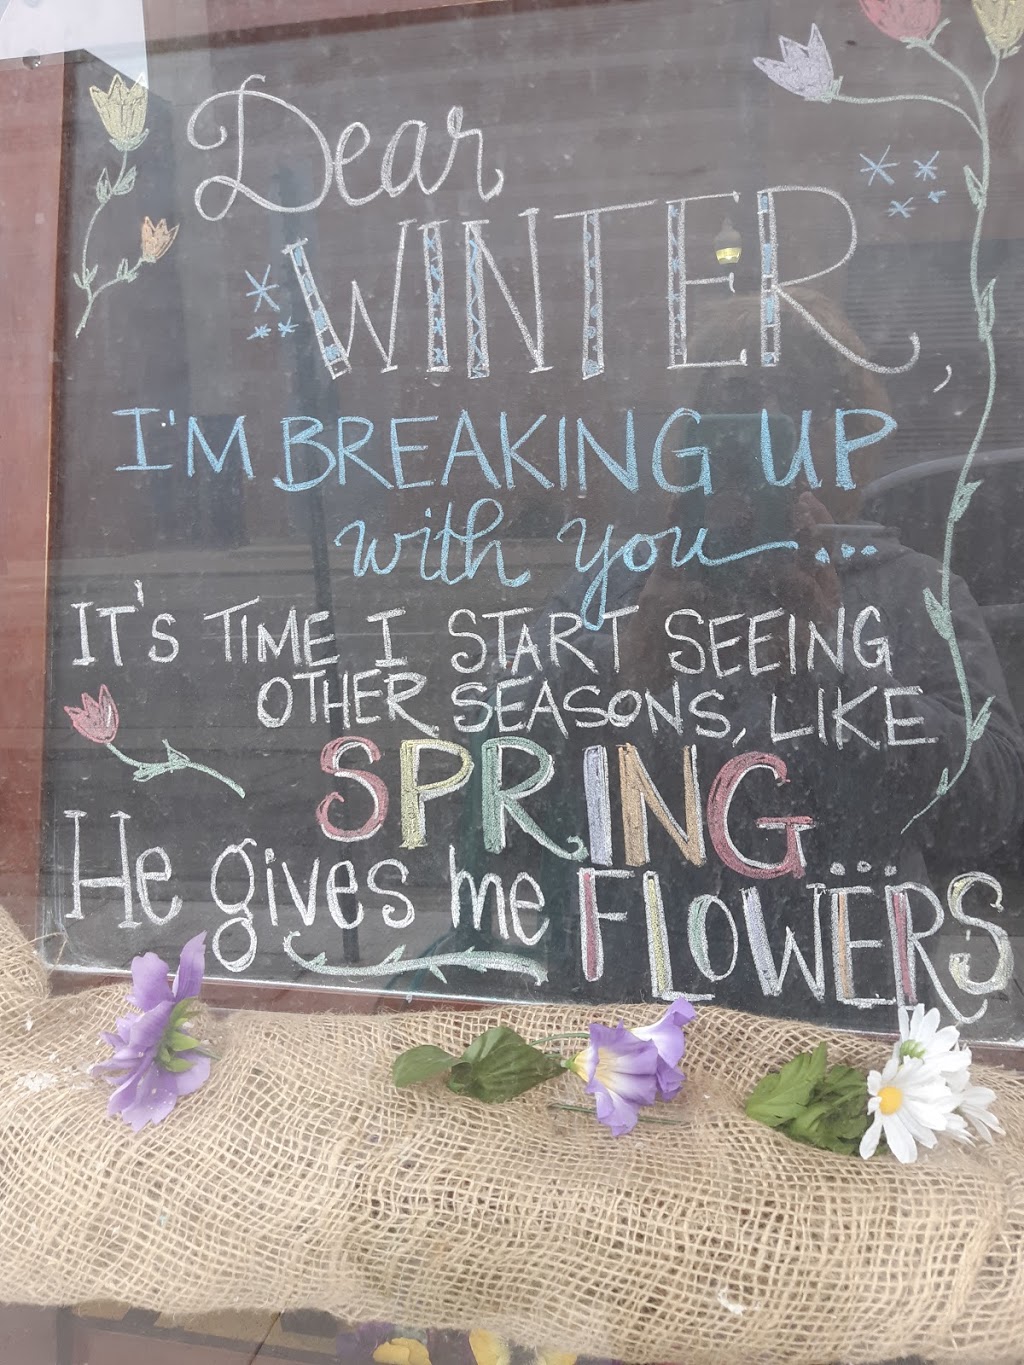 Dear
WINTER,
I'M BREAKING UP
with you...
IT'S TIME I START SEEING
OTHER SEASONS, LIKE
SPRING...
He gives me FLOWERS